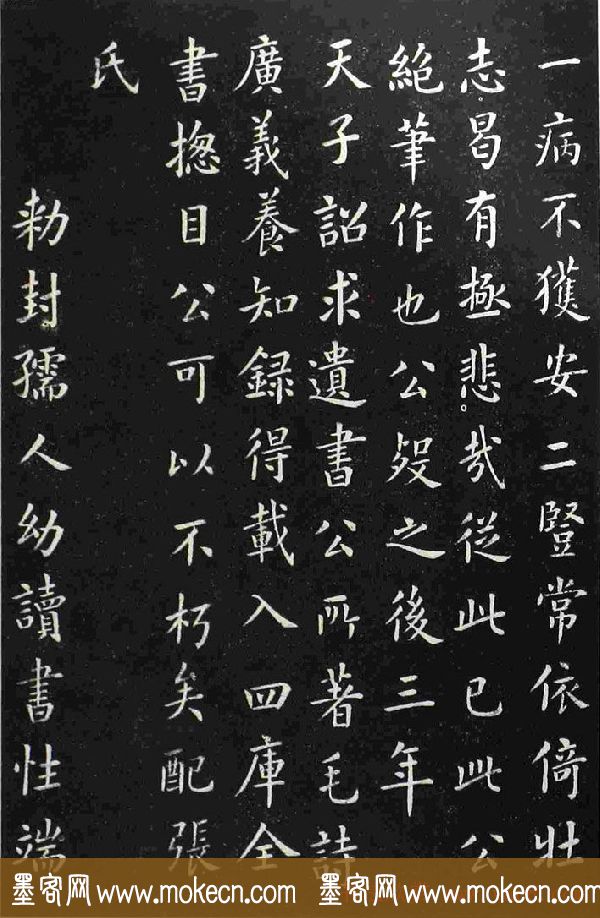 一病不獲安二豎常依倚壯
志曷有極悲哉從此已此公
絕筆作也公歿之後三年
天子詔求遺書公所著毛詩
廣義養知録得載入四庫全
書揔目公可以不朽矣配張
氏
勑封孺人幼讀書性端
墨客网 www.mokecn.com 墨客网 www.mokecn.com